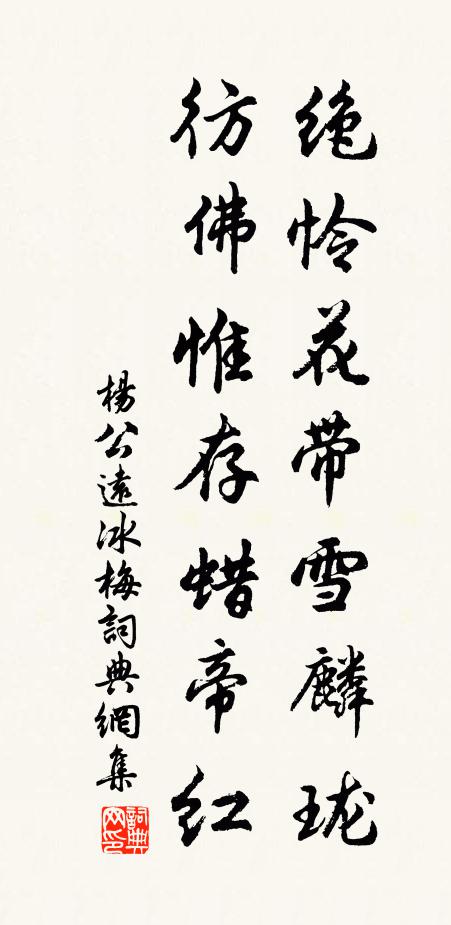 绝怜花带雪麟珑
彷佛惟存蜡帝红
楊公遠冰梅詞典網集
詞典
网印